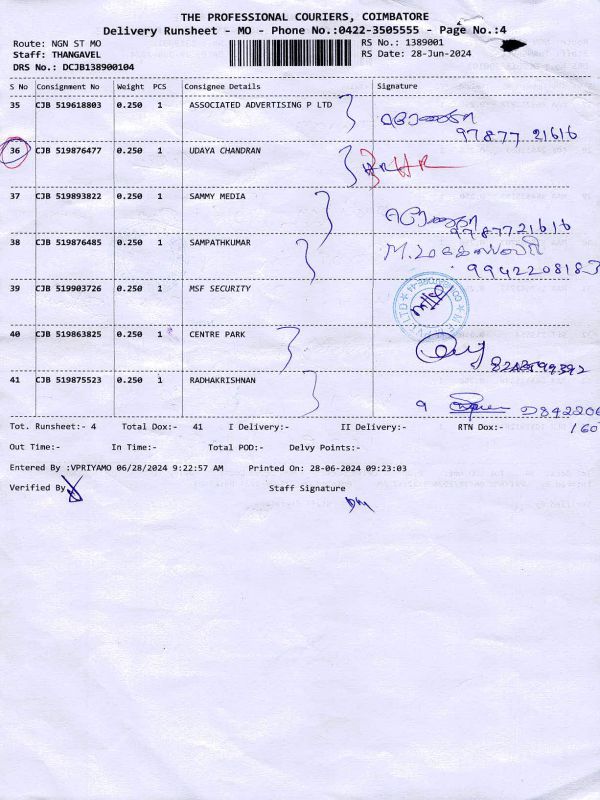 THE PROFESSIONAL COURIERS, COIMBATORE
Delivery Runsheet - MO - Phone No.:0422-3505555 - Page No.:4
Route: NGN ST MO
RS No.: 1389001
Staff: THANGAVEL
RS Date: 28-Jun-2024
DRS No.: DCJB138900104
S No Consignment No Weight PCS Consignee Details Signature
35 CJB 519618803 0.250 1 ASSOCIATED ADVERTISING P LTD
97877 21616
36 CJB 519876477 0.250 1 UDAYA CHANDRAN
37 CJB 519893822 0.250 1 SAMMY MEDIA
9787721616
38 CJB 519876485 0.250 1 SAMPATHKUMAR
9942208183
39 CJB 519903726 0.250 1 MSF SECURITY
40 CJB 519863825 0.250 1 CENTRE PARK
41 CJB 519875523 0.250 1 RADHAKRISHNAN
Tot. Runsheet:- 4 Total Dox:- 41 I Delivery:- II Delivery:- RTN Dox:-
Out Time:- In Time:- Total POD:- Delvy Points:-
Entered By :VPRIYAMO 06/28/2024 9:22:57 AM Printed On: 28-06-2024 09:23:03
Verified By
Staff Signature